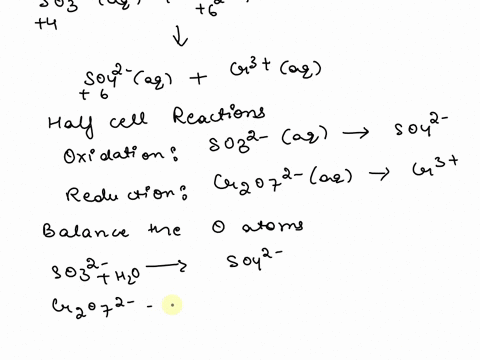 SO3 (aq) +6 2-
+4
↓
SO4²⁻(aq) + Cr³⁺(aq)
+6
Half cell Reactions
Oxidation: SO3²⁻ (aq) → SO4²⁻
Reduction: Cr2O7²⁻(aq) → Cr³⁺
Balance the O atoms
SO3²⁻ + H2O → SO4²⁻
Cr2O7²⁻ -